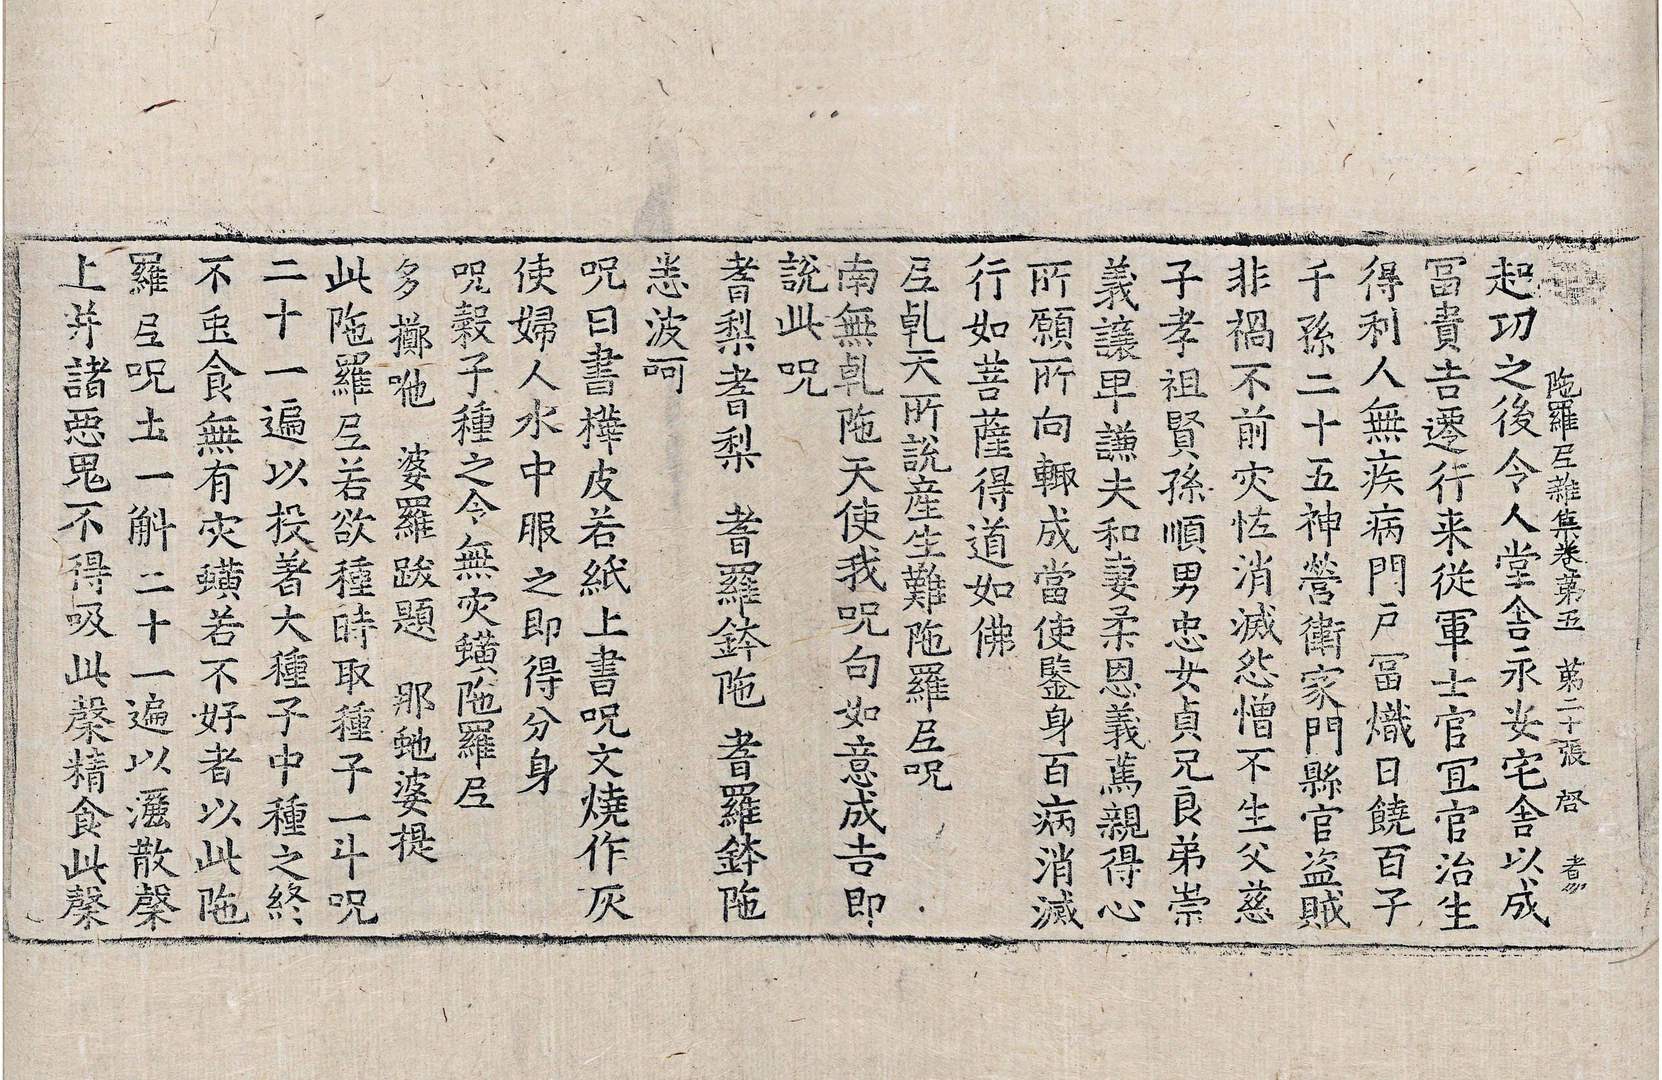 陁羅𡰱雜集卷苐五　苐二十張　啓
起功之後令人堂舎永安宅舎以成
冨貴吉遷行来從軍士官冝官治生
得利人無疾病門戸冨熾日饒百子
千孫二十五神營衛家門縣官盗賊
非禍不前灾恠消滅𢘤憎不生父慈
子孝祖賢孫順男忠女貞兄良弟崇
義讓卑謙夫和妻柔恩義萬親得心
所願所向輙成當使鑒身百病消滅
行如菩薩得道如佛
𡰱乹天所說産生難陁羅𡰱呪
南無乹陁天使我呪句如意成吉即
說此呪
耆梨耆梨　耆羅鉢陁　耆羅鉢陁
悉波呵
呪曰書樺皮若紙上書呪文燒作灰
使婦人水中服之即得分身
呪糓子種之令無灾蟥陁羅𡰱
多擲哋　婆羅跋題　那虵婆提
此陁羅𡰱若欲種時取種子一斗呪
二十一遍以投著大種子中種之終
不虫食無有灾蟥若不好者以此陁
羅𡰱呪土一斛二十一遍以灑散𣫍
上并諸惡鬼不得吸此𣫍精食此𣫍